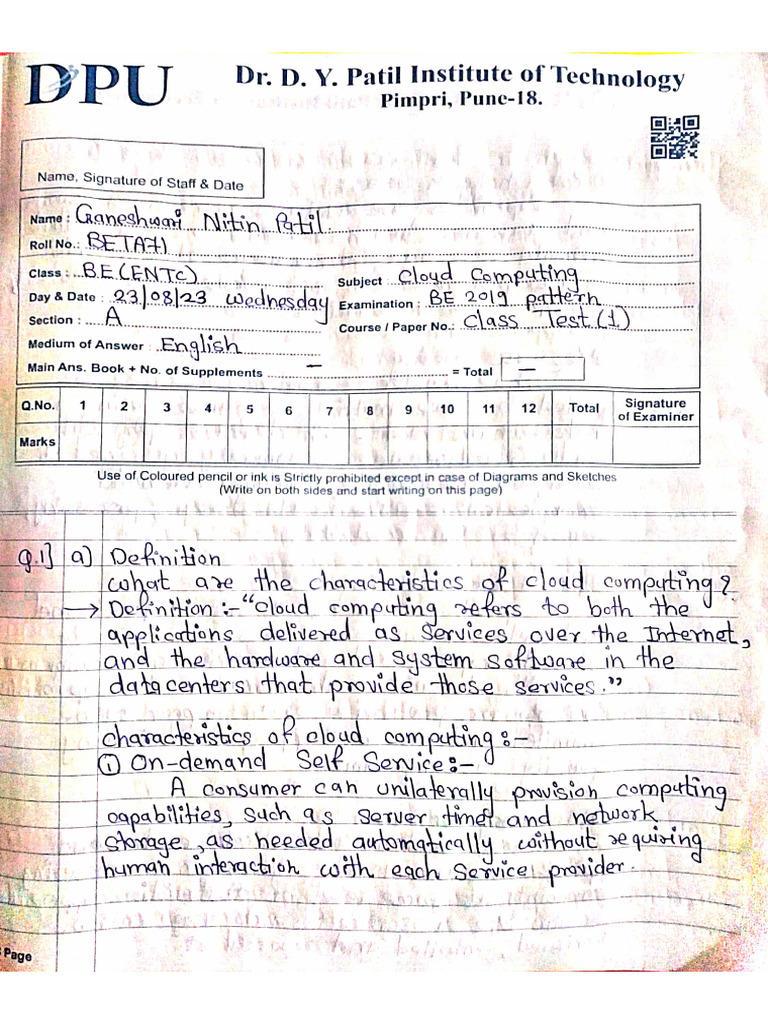 DPU
Dr. D. Y. Patil Institute of Technology
Pimpri, Pune-18.
Name, Signature of Staff & Date
Name : Ganeshwari Nitin Patil
Roll No.: BETA71
Class : BE(ENTC)
Subject : Cloud Computing
Day & Date : 23/08/23 Wednesday
Examination : BE 2019 pattern
Section : A
Course / Paper No.: Class Test (1)
Medium of Answer : English
Main Ans. Book + No. of Supplements — = Total —
Q.No. 1 2 3 4 5 6 7 8 9 10 11 12 Total Signature of Examiner
Marks
Use of Coloured pencil or ink is Strictly prohibited except in case of Diagrams and Sketches
(Write on both sides and start writing on this page)
Q.1] a) Definition
What are the characteristics of cloud computing?
→ Definition :- "Cloud computing refers to both the
applications delivered as services over the Internet,
and the hardware and system software in the
datacenters that provide those services."
Characteristics of cloud computing :-
① On-demand Self Service :-
A consumer can unilaterally provision computing
capabilities, such as server time and network
storage, as needed automatically without requiring
human interaction with each service provider.
Page